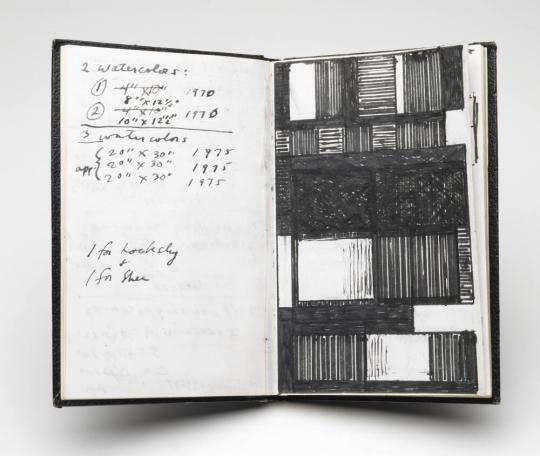 2 watercolors:
① 4" x 10" 1970
8" x 12½"
② 4" x 13" 1970
10" x 12½"
3 watercolors
20" x 30" 1975
app. 20" x 30" 1975
20" x 30" 1975
1 for Locksly
&
1 for Shea